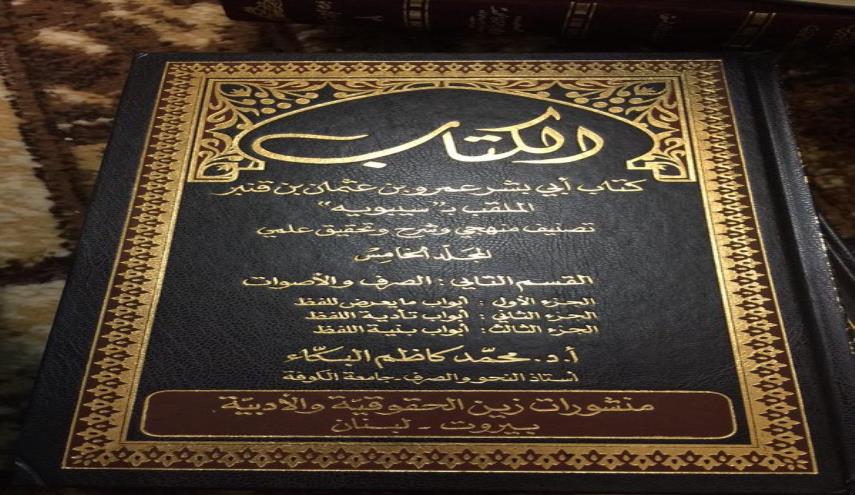 الكتاب
كتاب أبي بشر عمرو بن عثمان بن قنبر
الملقب بـ "سيبويه"
تصنيف منهجي وشرح وتحقيق علمي
المجلد الخامس
القسم الثاني : الصرف والأصوات
الجزء الأول : أبواب ما يعرض للفظ
الجزء الثاني : أبواب تأدية اللفظ
الجزء الثالث : أبواب بنية اللفظ
أ.د. محمد كاظم البكاء
أستاذ النحو والصرف - جامعة الكوفة
منشورات زين الحقوقية والأدبية
بيروت - لبنان